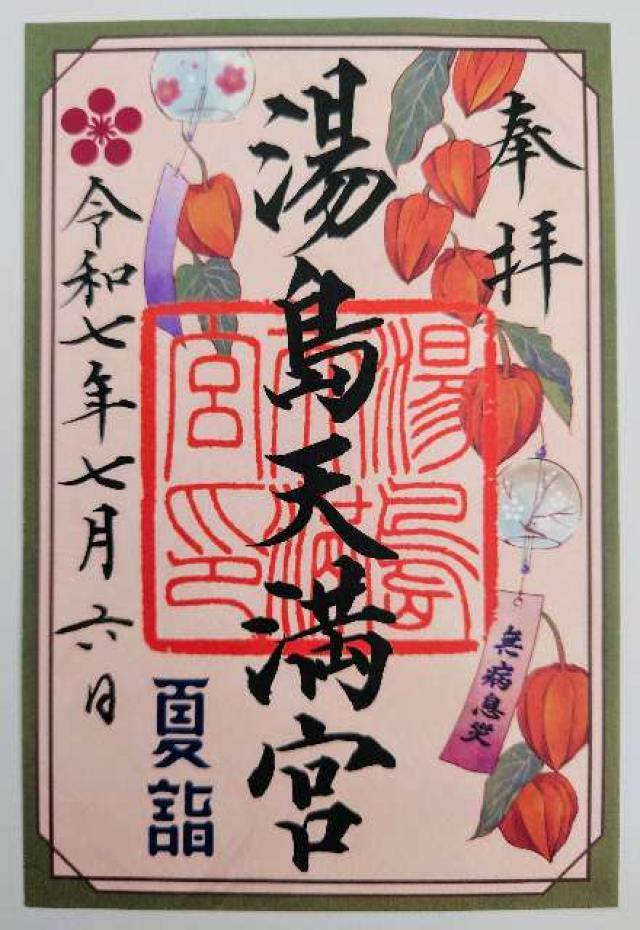 奉拝
湯島天満宮
湯島天満宮印
令和七年七月六日
夏詣
無病息災